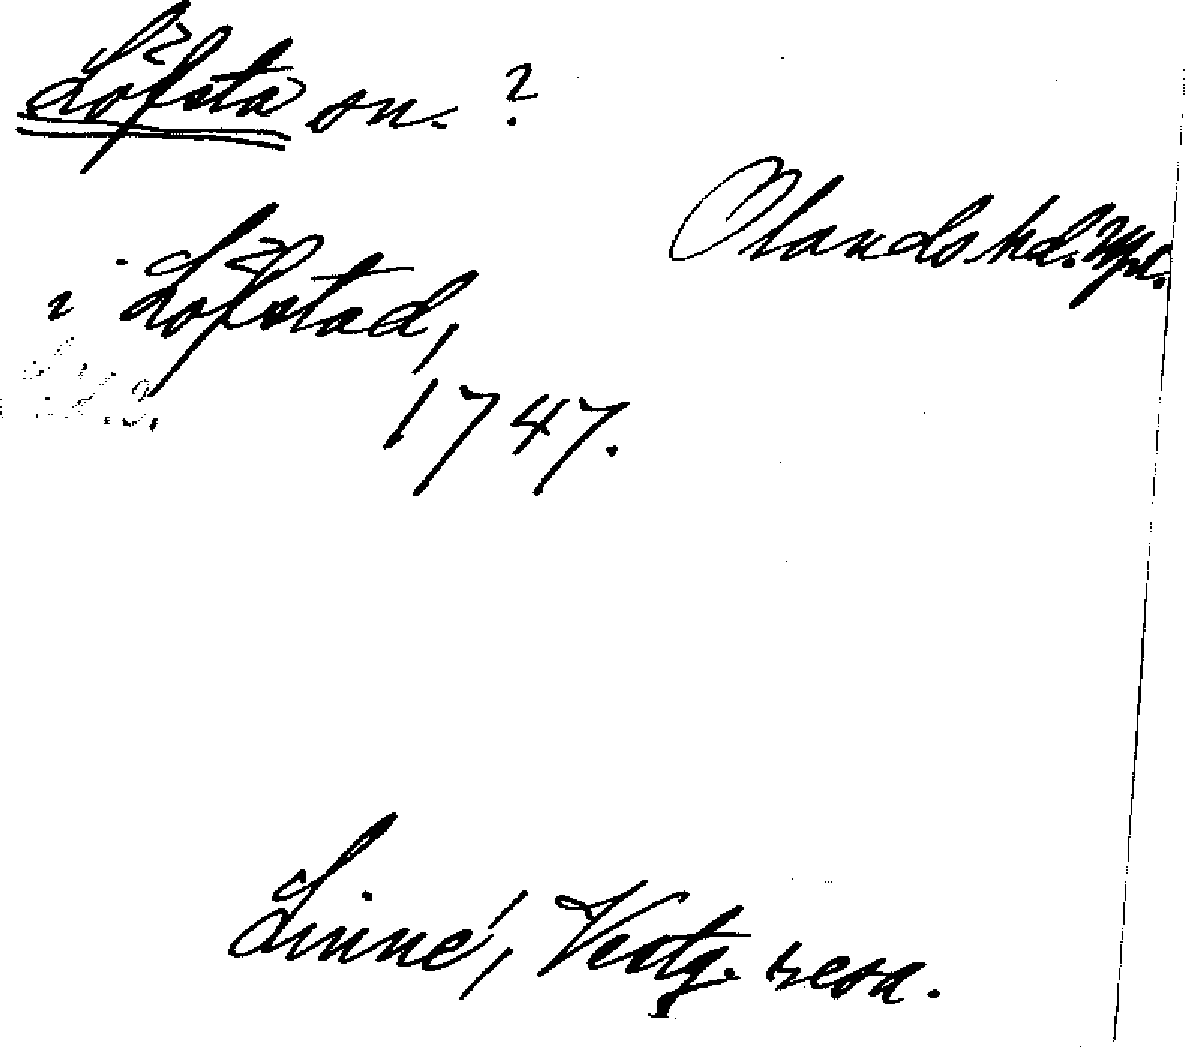 Löfsta sn. ?
Olands hd. Upl.
i Löfstad,
1747.
Linné, Vestg. resa.